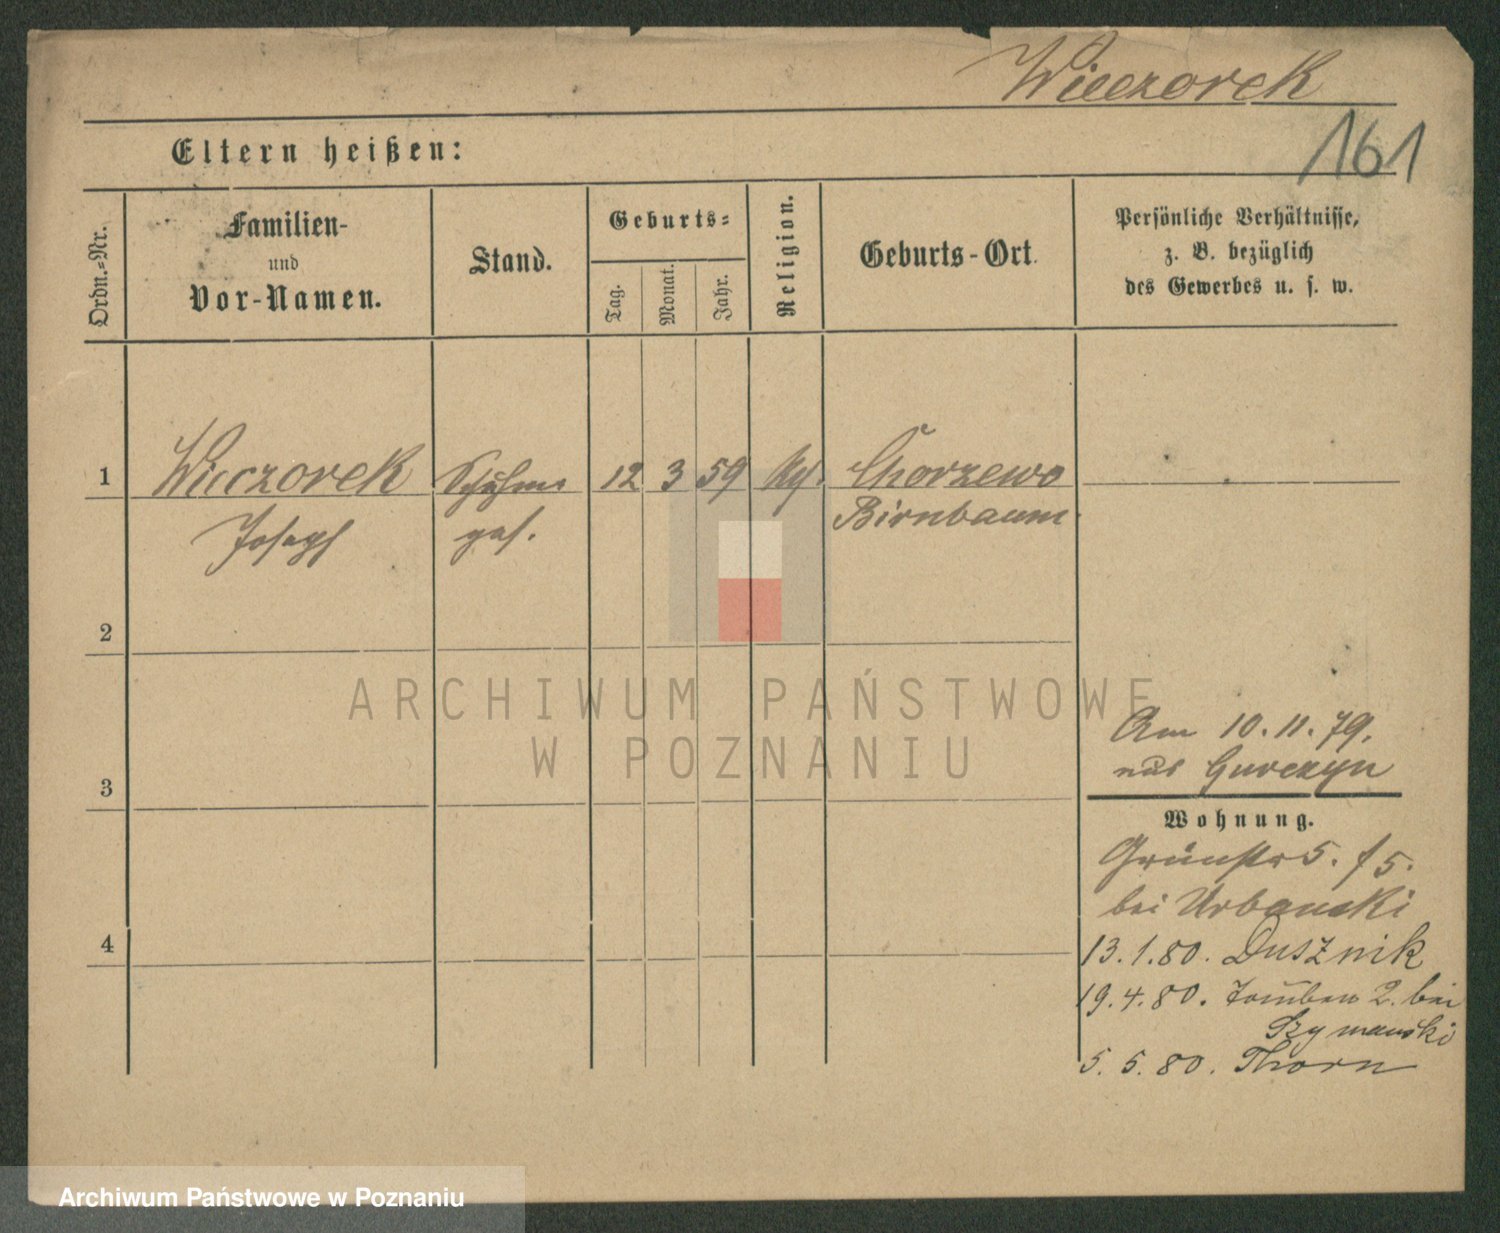 Wieczorek
161
Eltern heißen:
Ordn.-Nr.
Familien-
und
Vor-Namen.
Stand.
Geburts-
Tag.
Monat.
Jahr.
Religion.
Geburts-Ort.
Persönliche Verhältnisse,
z. B. bezüglich
des Gewerbes u. s. w.
1 Wieczorek Schuhm 12 3 59 Chorzewo
Joseph ges. Birnbaum.
2
3
4
Am 10.11.79.
aus Gurczyn
Wohnung.
Grünstr 5.
bei Urbanski
13.1.80. Dusznik
19.4.80. 2. bei
Szymanski
5.5.80. Thorn
ARCHIWUM PAŃSTWOWE
W POZNANIU
Archiwum Państwowe w Poznaniu